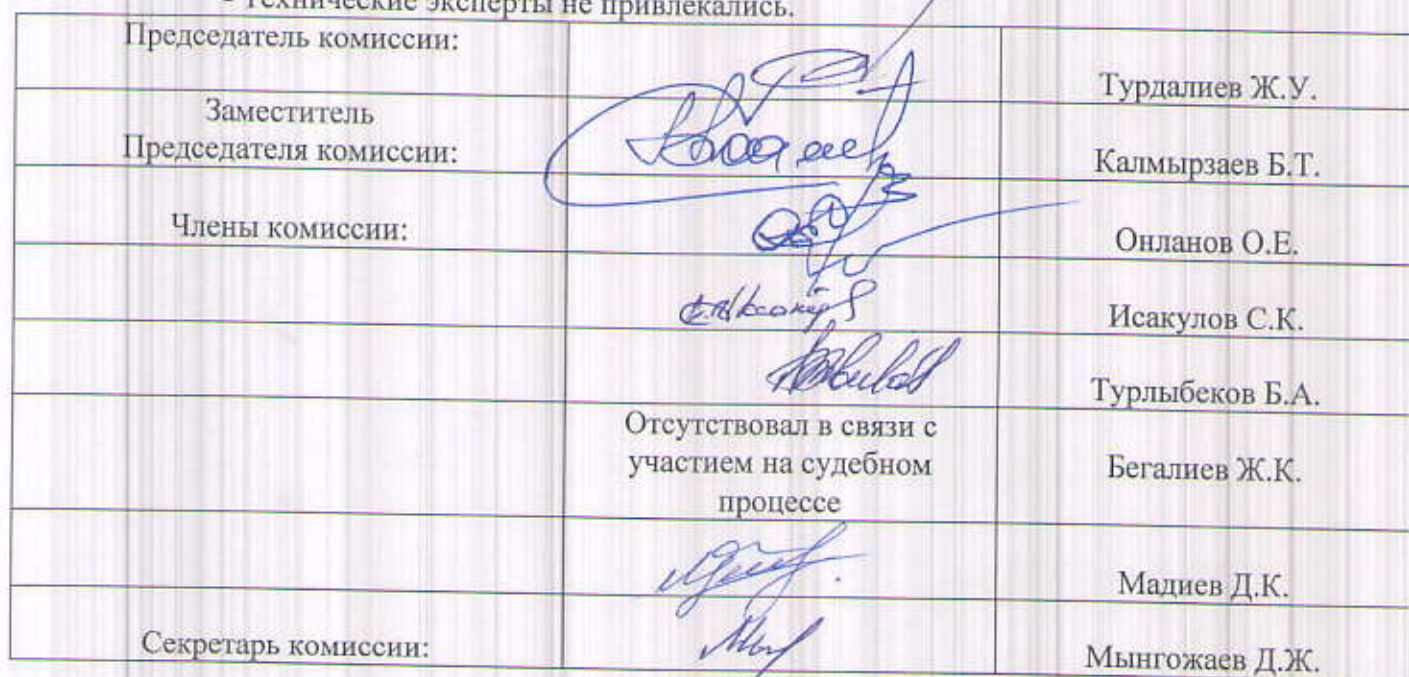 Технические эксперты не привлекались.
Председатель комиссии:
Турдалиев Ж.У.
Заместитель
Председателя комиссии:
Калмырзаев Б.Т.
Члены комиссии:
Онланов О.Е.
Исакулов С.К.
Турлыбеков Б.А.
Отсутствовал в связи с
участием на судебном
процессе
Бегалиев Ж.К.
Мадиев Д.К.
Секретарь комиссии:
Мынгожаев Д.Ж.